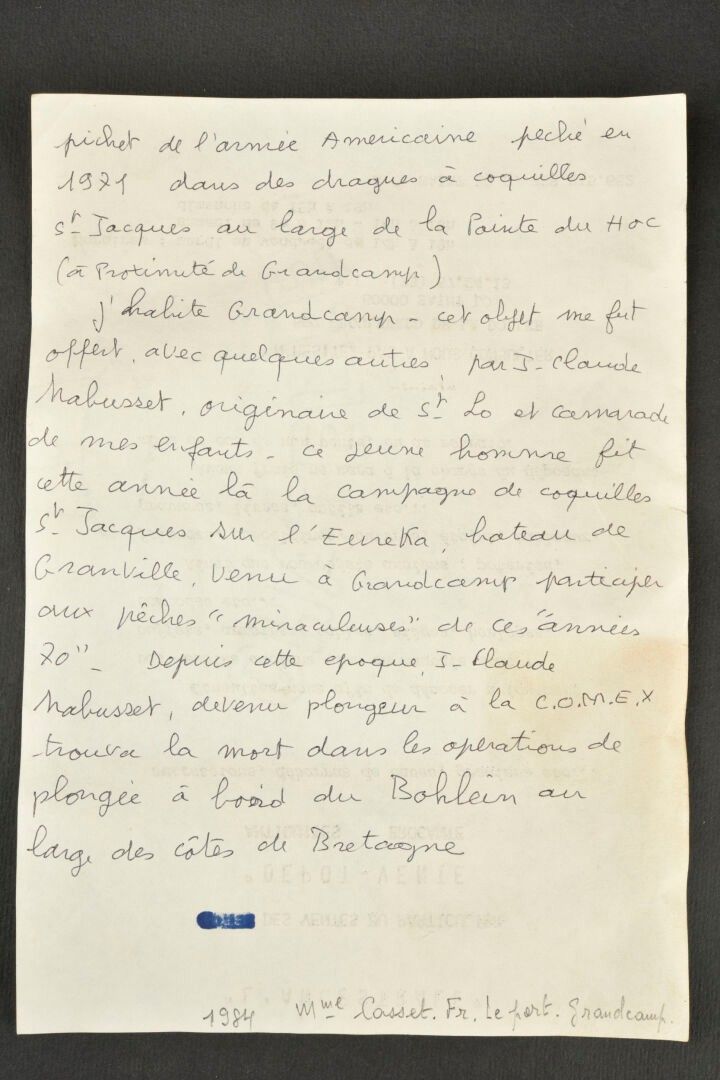 pichet de l'armée Americaine peché en
1971 dans des dragues à coquilles
St Jacques au large de la Pointe du Hoc
(à Proximité de Grandcamp)
j'habite Grandcamp - cet objet me fut
offert, avec quelques autres, par J-Claude
Mabusset, originaire de St Lo et camarade
de mes enfants - ce jeune homme fit
cette année là la campagne de coquilles
St Jacques sur l'Eureka, bateau de
Granville, venu à Grandcamp participer
aux pêches "miraculeuses" de ces "années
70" - Depuis cette epoque, J-Claude
Mabusset, devenu plongeur à la C.O.M.E.X
trouva la mort dans les operations de
plongée à bord du Bohlein au
large des côtes de Bretagne
1984 Mme Casset. Fr. Le port. Grandcamp.